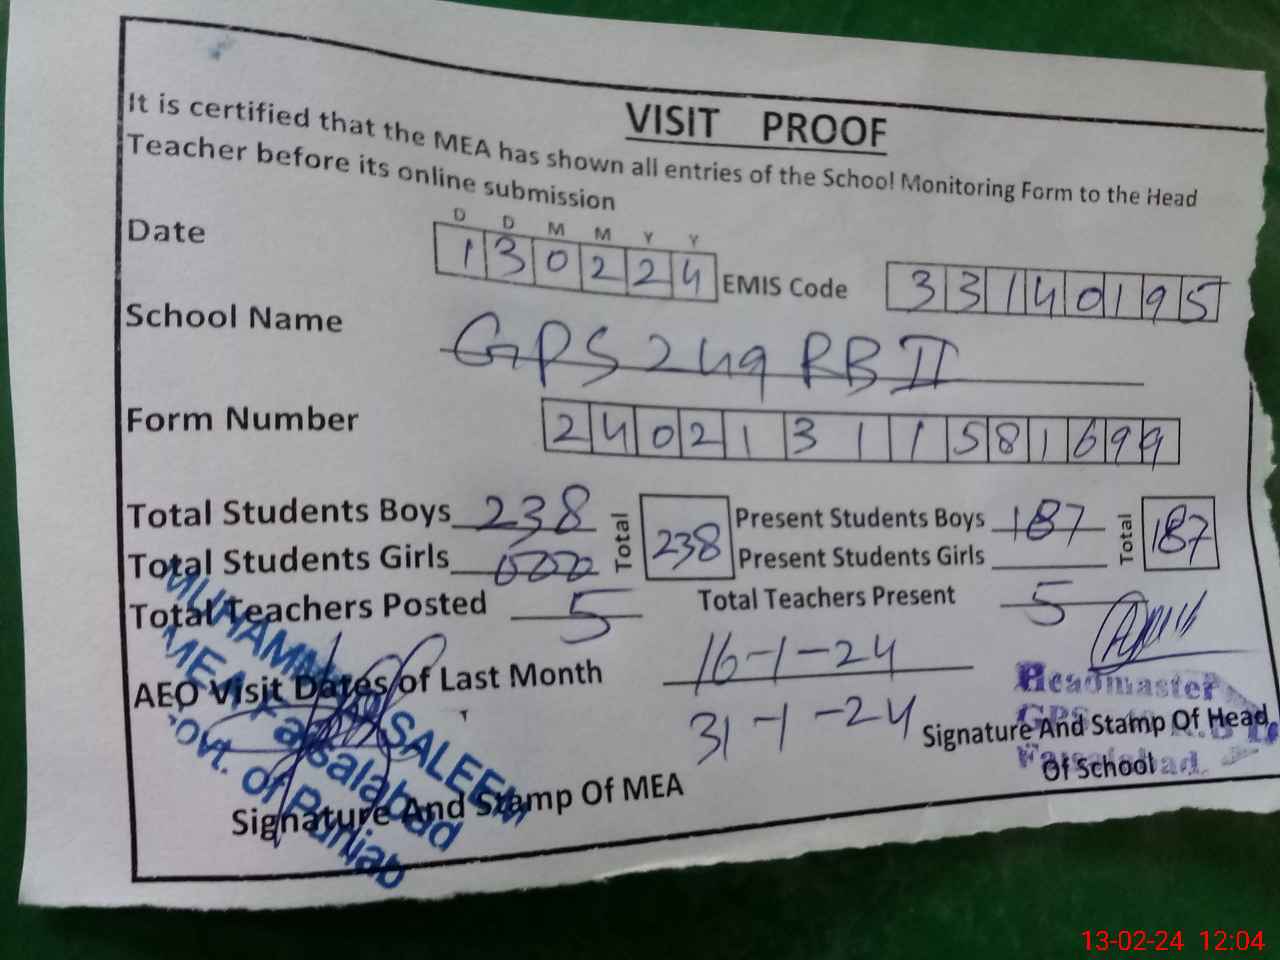 VISIT PROOF
It is certified that the MEA has shown all entries of the School Monitoring Form to the Head
Teacher before its online submission
D D M M Y Y
Date 130224 EMIS Code 33140195
School Name GPS 249 RB II
Form Number 24021311581699
Total Students Boys 238 Total 238 Present Students Boys 187 Total 187
Total Students Girls 000 Present Students Girls
Total Teachers Posted 5 Total Teachers Present 5
AEO Visit Dates of Last Month 16-1-24
31-1-24
MUHAMMAD SALEEM
MEA Faisalabad
Govt. of Punjab
Signature And Stamp Of MEA
Headmaster
GPS
Faisalabad.
Signature And Stamp Of Head
Of School
13-02-24 12:04